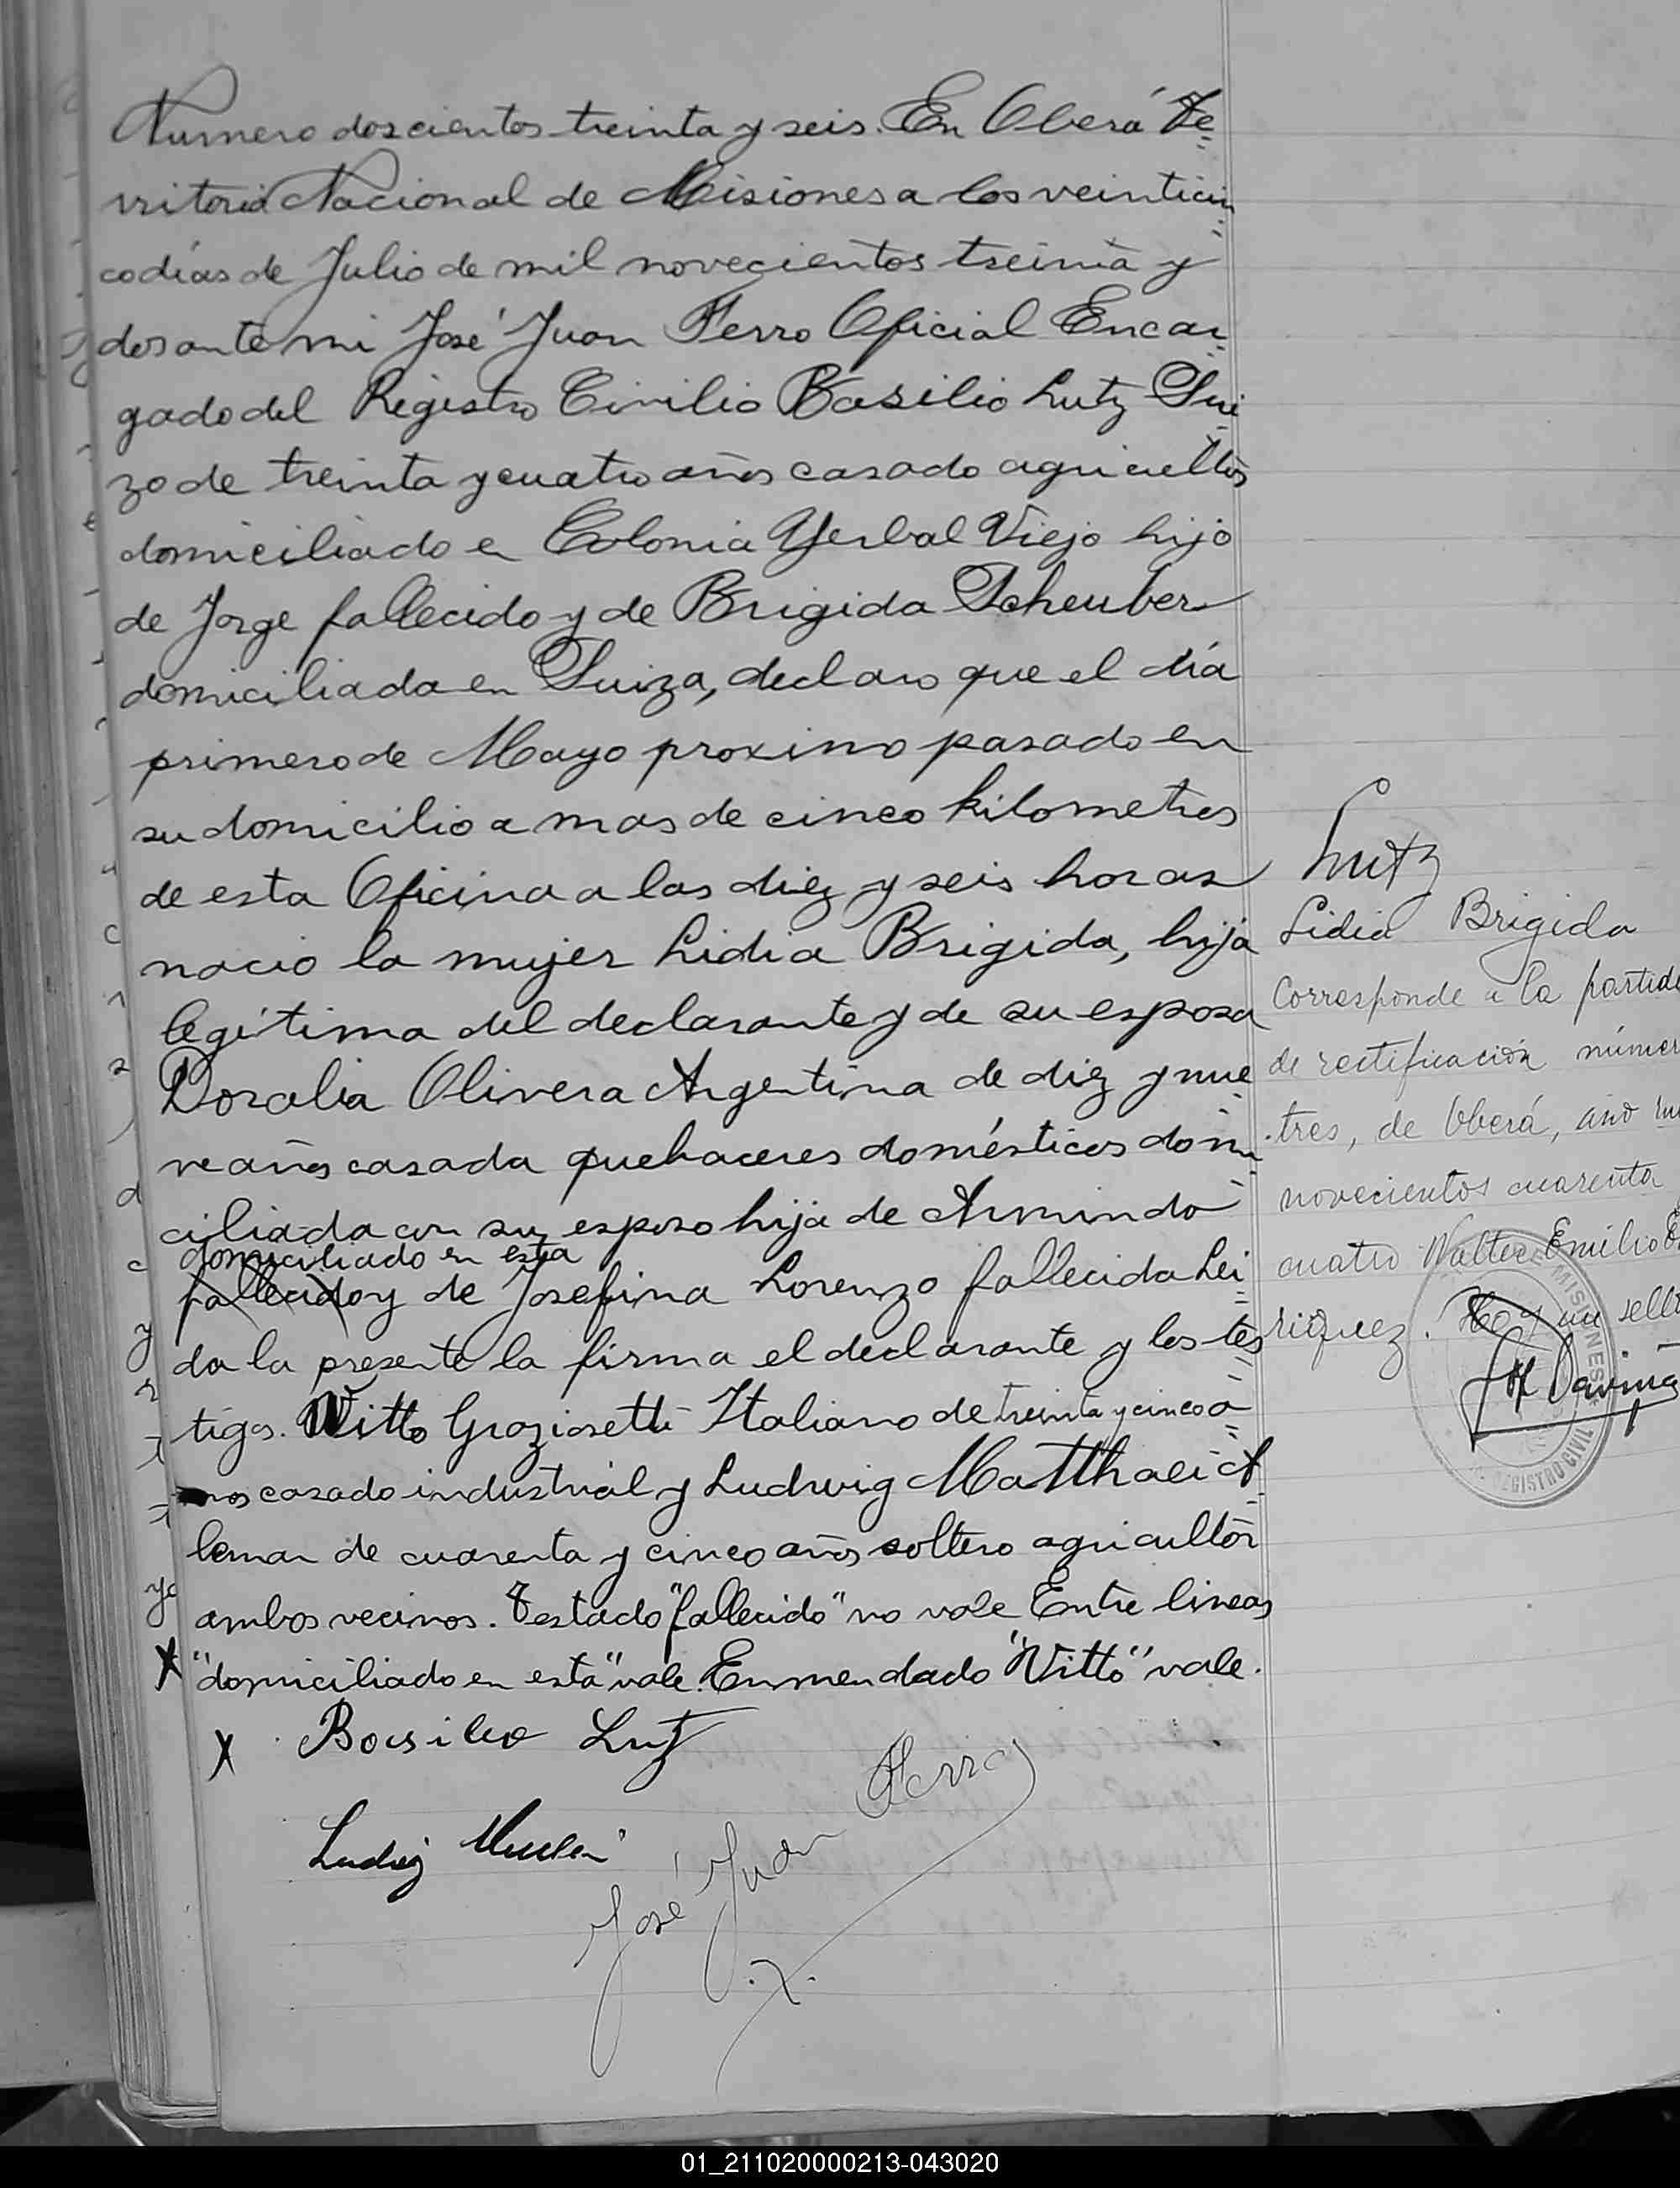 Numero doscientos treinta y seis. En Oberá Te=
rritorio Nacional de Misiones a los veinticin=
co días de Julio de mil novecientos treinta y
dos ante mi José Juan Ferro Oficial Encar=
gado del Registro Civil Basilio Lutz Sui=
zo de treinta y cuatro años casado agricultor
domiciliado en Colonia Yerbal Viejo hijo
de Jorge fallecido y de Brigida Scheuber
domiciliada en Suiza, declaro que el día
primero de Mayo proximo pasado en
su domicilio a mas de cinco kilometros
de esta Oficina a las diez y seis horas
nacio la mujer Lidia Brigida, hija
legítima del declarante y de su esposa
Doralia Olivera Argentina de diez y nue=
ve años casada quehaceres domésticos domi=
ciliada con su esposo hija de Armindo
domiciliado en esta
fallecido y de Josefina Lorenzo fallecida Lei=
da la presente la firma el declarante y los tes=
tigos. Vitto Graziosetti Italiano de treinta y cinco a=
ños casado industrial y Ludwig Matthaei A=
leman de cuarenta y cinco años soltero agricultor
ambos vecinos. Testado "fallecido" no vale Entre lineas
"domiciliado en esta" vale. Enmendado "Vitto" vale.
X Basilio Lutz
José Juan Ferro
Lutz
Lidia Brigida
Corresponde a la partida
de rectificación númer
tres, de Oberá, año
novecientos cuarenta
cuatro Walter Emilio
riquez. Hay un sello
MISIONES
REGISTRO CIVIL
01_211020000213-043020